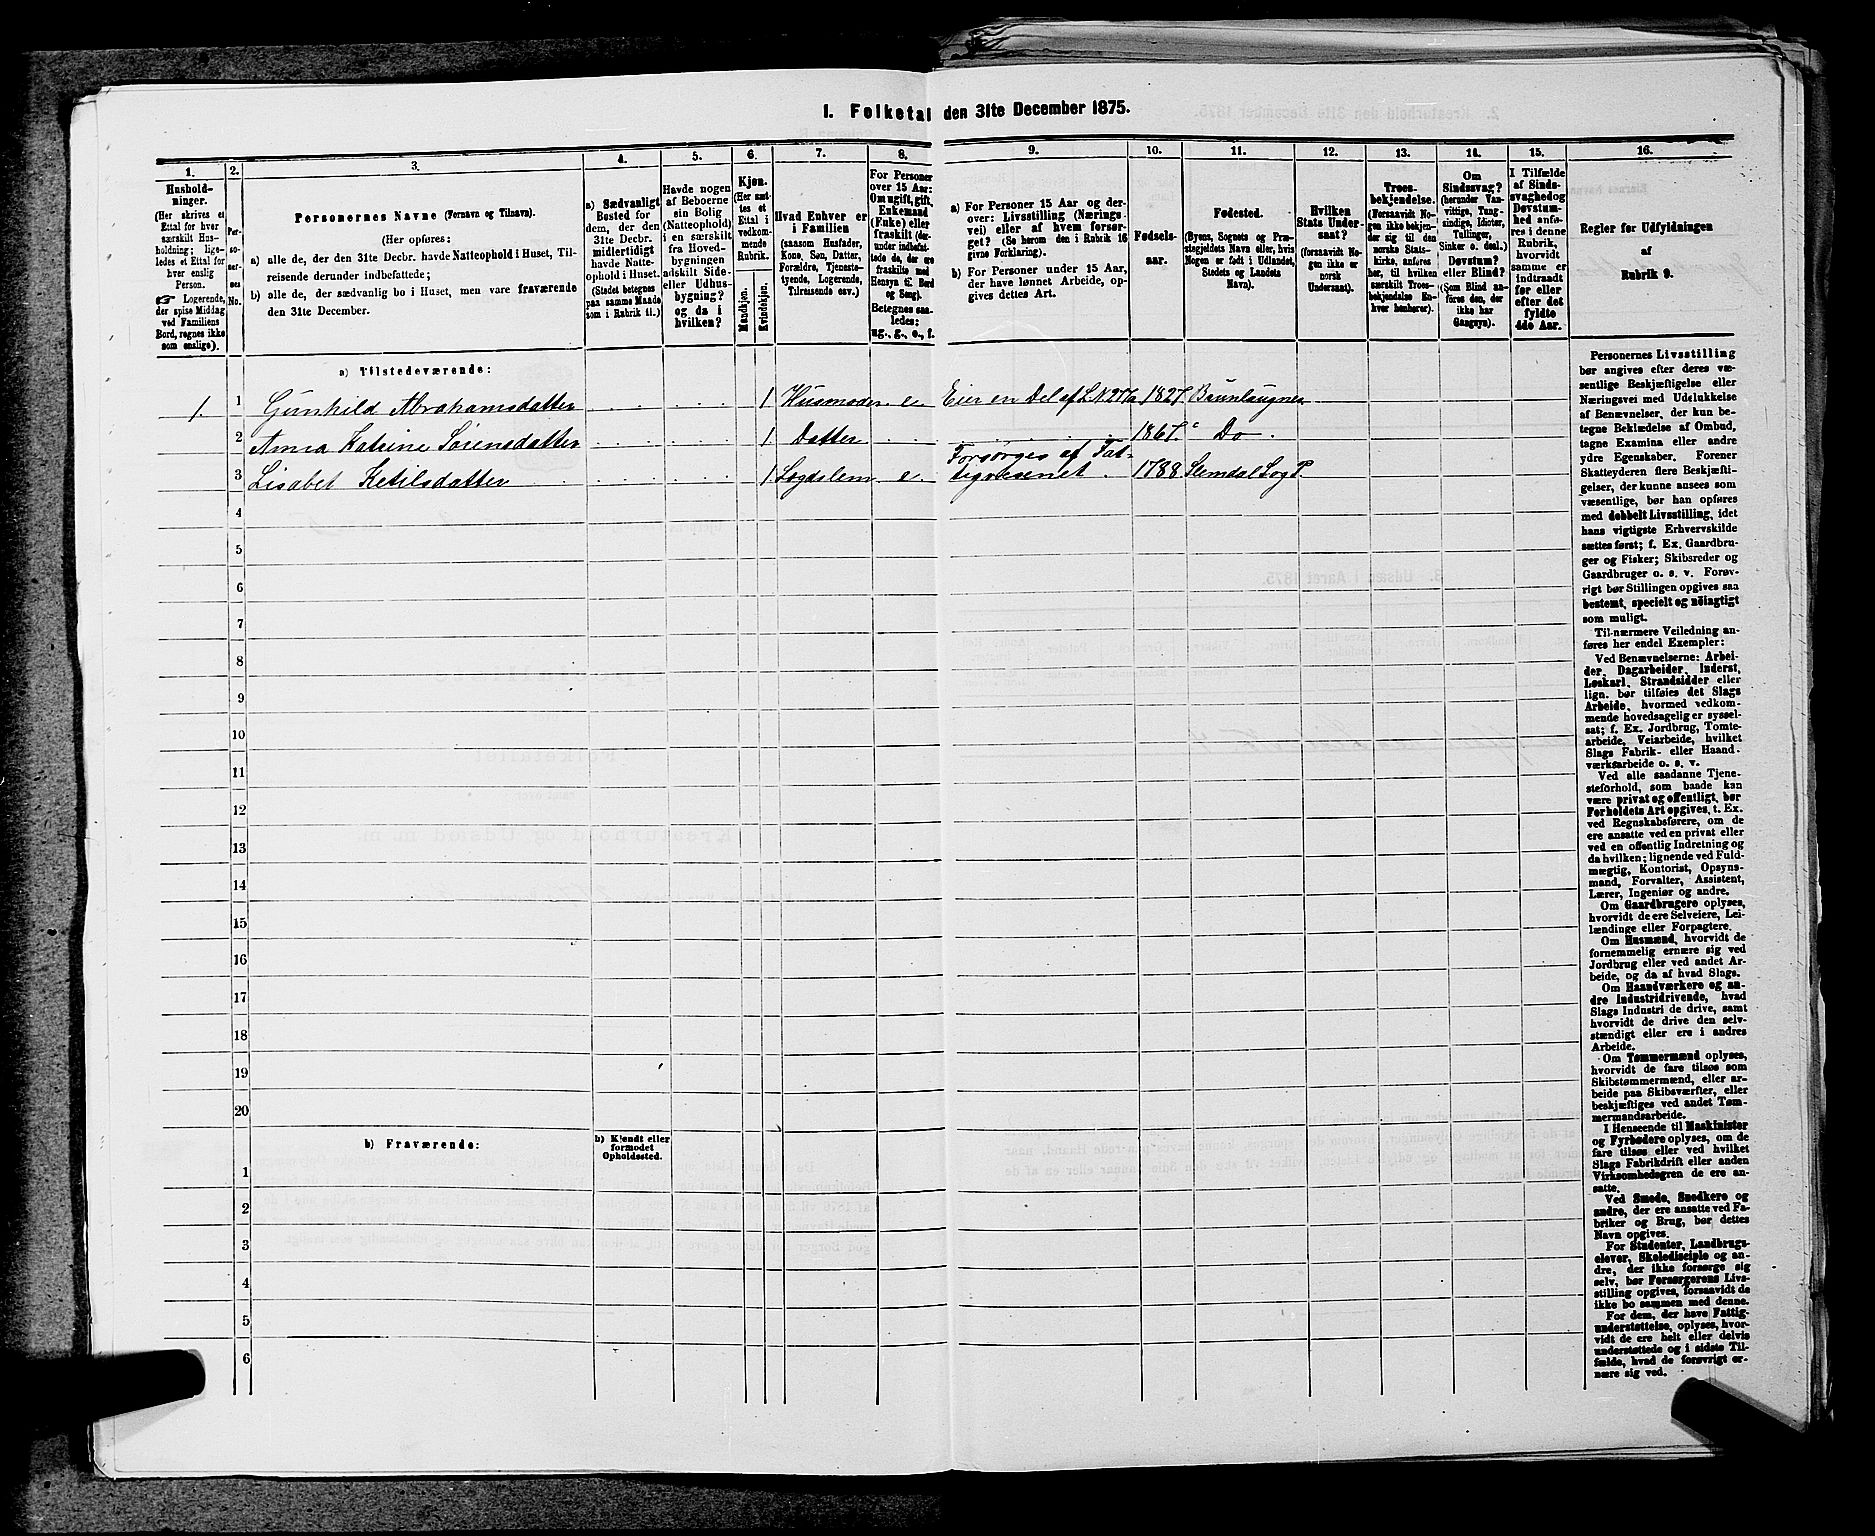 I. Folketal den 31te December 1875.
1. 2. 3. 4. 5. 6. 7. 8. 9. 10. 11. 12. 13. 14. 15. 16.
Hushold-
ninger.
(Her skrives et
Ettal for hver
særskilt Hus-
holdning; lige-
ledes et Ettal for
hver enslig
Person.
☞ Logerende,
der spise Middag
ved Familiens
Bord, regnes ikke
som enslige).
Per-
so-
ner-
nes
No.
Personernes Navne (Fornavn og Tilnavn).
(Her opføres:
a) alle de, der den 31te Decbr. havde Natteophold i Huset, Til-
reisende derunder indbefattede;
b) alle de, der sædvanlig bo i Huset, men vare fraværende
den 31te December.
a) Sædvanligt
Bosted for
dem, der den
31te Decbr.
midlertidigt
havde Natte-
ophold i Huset.
(Stedet betegnes
paa samme Maade
som i Rubrik 11.)
Havde nogen
af Beboerne
sin Bolig
(Natteophold)
i en særskilt
fra Hoved-
bygningen
adskilt Side-
eller Udhus-
bygning?
og da i
hvilken?
Kjøn.
(Her sæt-
tes et
Ettal i
vedkom-
mende
Rubrik.
Mandkjøn.
Kvindekjøn.
Hvad Enhver er
i Familien
(saasom Husfader,
Kone, Søn, Datter,
Forældre, Tjeneste-
tyende, Logerende,
Tilreisende osv.)
For Personer
over 15 Aar:
Om ugift, gift,
Enkemand
(Enke) eller
fraskilt (der-
under indbefat-
tede de, der ere
fraskilte med
Hensyn til Bord
og Seng).
Betegnes saa-
ledes:
ug., g., e., f.
a) For Personer 15 Aar og der-
over: Livsstilling (Nærings-
vei) eller af hvem forsør-
get? (Se herom den i Rubrik 16
givne Forklaring).
b) For Personer under 15 Aar,
der have lønnet Arbeide, op-
gives dettes Art.
Fødsels-
aar.
Fødested.
(Byens, Sognets og Præ-
stegjeldets Navn eller, hvis
Nogen er født i Udlandet,
Stedets og Landets
Navn).
Hvilken
Stats Under-
saat?
(foraavidt No-
gen ikke er
norsk
Undersaat).
Troes-
bekjendelse.
(Forsaavidt No-
gen ikke bekjen-
der sig til den
norske Stats-
kirke, anføres
her, til hvilken
særskilt Troes-
bekjendelse En-
hver henhører).
Om
Sindssvag?
(herunder Van-
vittige, Tung-
sindige, Idioter,
Tullinger,
Sinker o. desl.).
Døvstum?
eller Blind?
(Som Blind an-
føres den, der
ikke har
Gangsyn).
I Tilfælde
af Sinds-
svaghed og
Døvstum-
hed anfø-
res i denne
Rubrik,
hvorvidt
samme er
indtraadt
før eller
efter det
fyldte
4de Aar.
Regler for Udfyldningen
af
Rubrik 9.
a) Tilstedeværende:
1. 1 Gunhild Abrahamsdatter 1 Husmoder e Eier en Del af L.N 27a 1827. Brunlaugnes
2 Anna Katrine Sørensdatter 1 Datter 1867. Do.
3 Lisabet Ketilsdatter 1 Logdslem e Forsørges af Fat-
tigvæsenet. 1788 Slemdal Sog P
4
5
6
7
8
9
10
11
12
13
14
15
16
17
18
19
20
b) Fraværende:
b) Kjendt eller
formodet
Opholdssted.
1
2
3
4
5
6
Personernes Livsstilling
bør angives efter deres væ-
sentlige Beskjæftigelse eller
Næringsvei med Udelukkelse
af Benævnelser, der kun be-
tegne Beklædelse af Ombud,
tagne Examina eller andre
ydre Egenskaber. Forener
Skatteyderen flere Beskjæfti-
gelser, der kunne ansees som
væsentlige, bør han opføres
med dobbelt Livsstilling, idet
hans vigtigste Erhvervskilde
sættes først; f. Ex. Gaardbru-
ger og Fisker; Skibsreder og
Gaardbruger o. s. v. Forøv-
rigt bør Stillingen opgives saa
bestemt, specielt og nöiagtigt
som muligt.
Til nærmere Veiledning an-
føres her endel Exempler:
Ved Benævnelserne: Arbei-
der, Dagarbeider, Inderst,
Løskarl, Strandsidder eller
lign. bør tilføies det Slags
Arbeide, hvormed vedkom-
mende hovedsagelig er syssel-
sat; f. Ex. Jordbrug, Tomte-
arbeide, Veiarbeide, hvilket
Slags Fabrik- eller Haand-
værksarbeide o. s. v.
Ved alle saadanne Tjene-
steforhold, som baade kan
være privat og offentligt, bør
Forholdets Art opgives, t. Ex.
ved Regnskabsførere, om de
ere ansatte ved en privat eller
ved en offentlig Indretning og
da hvilken; lignende ved Fuld-
mægtig, Kontorist, Opsyns-
mand, Forvalter, Assistent,
Lærer, Ingeniør og andre.
Om Gaardbrugere oplyses,
hvorvidt de ere Selveiere, Lei-
lændinge eller Forpagtere.
Om Husmænd, hvorvidt de
fornemmelig ernære sig ved
Jordbrug eller ved andet Ar-
beide, og da af hvad Slags.
Om Haandværkere og an-
dre Industridrivende, hvad
Slags Industri de drive, samt
hvorvidt de drive den selv-
stændigt eller ere i andres
Arbeide.
Om Tømmermænd oplyses,
hvorvidt de fare tilsøs som
Skibstømmermænd, eller ar-
beide paa Skibsværfter, eller
beskjæftiges ved andet Tøm-
mermandsarbeide.
I Henseende til Maskinister
og Fyrbødere oplyses, om de
fare tilsøs eller ved hvilket
Slags Fabrikdrift eller anden
Virksomhedsgren de ere an-
satte.
Ved Smede, Snedkere og
andre, der ere ansatte ved Fa-
briker og Brug, bør dettes
Navn opgives.
For Studenter, Landbrugs-
elever, Skoledisciple og an-
dre, der ikke forsørge sig
selv, bør Forsørgerens Livs-
stilling opgives, forsaavidt de
ikke bo sammen med denne.
For dem, der have Fattig-
understøttelse, oplyses, hvor-
vidt de ere helt eller delvis
understøttede og i sidste Til-
fælde, hvad de forøvrigt er-
nære sig ved.